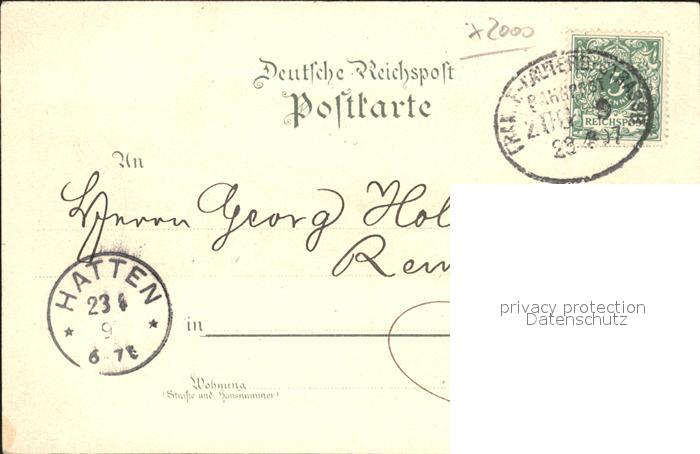 x2000
Deutsche Reichspost
Postkarte
BAHNPOST
ZUG
23
97
5
REICHSPOST
An
Herrn Georg Hol
Rem
HATTEN
23 6
9
6-7
in
Wohnung
(Straße und Hausnummer)
privacy protection
Datenschutz